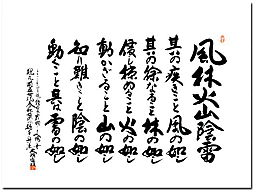 風林火山陰雷
其の疾きこと風の如し
其の徐なること林の如し
侵し掠めること火の如し
動かざること山の如し
知り難きこと陰の如し
動くこと具雷の如し